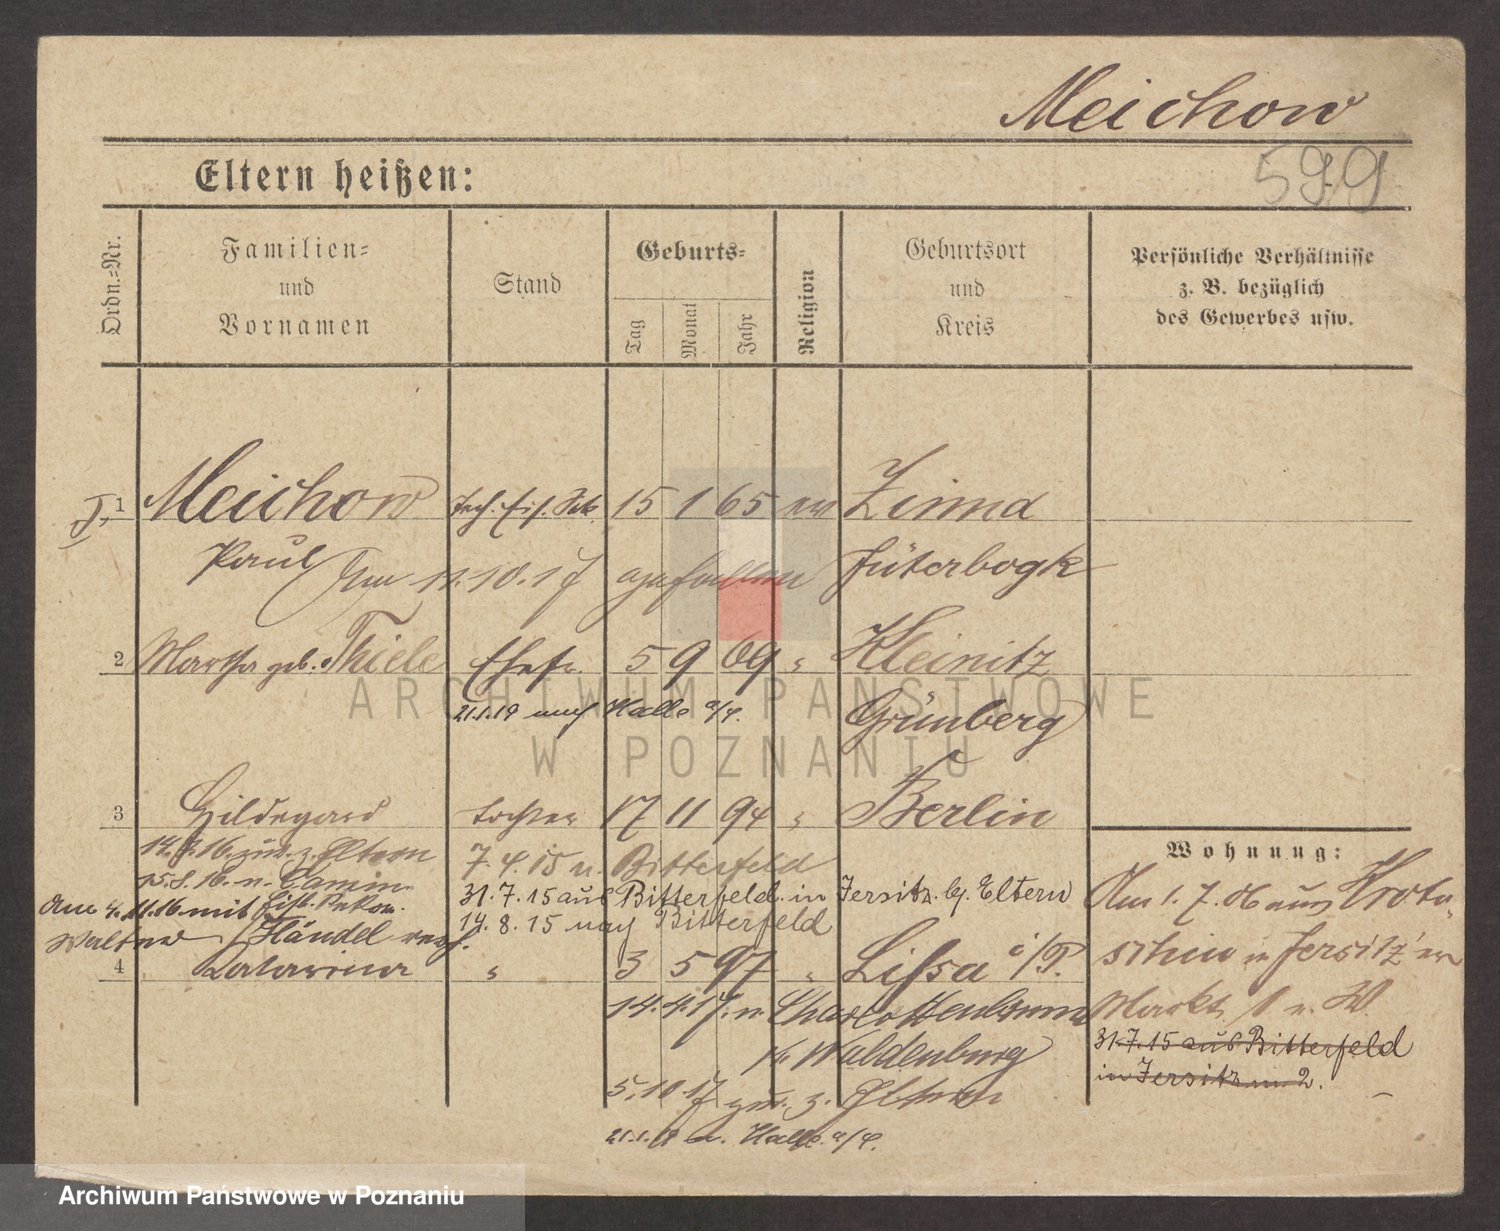 Meichow
599
Eltern heißen:
Ordn.=Nr.
Familien=
und
Vornamen
Stand
Geburts=
Tag
Monat
Jahr
Religion
Geburtsort
und
Kreis
Persönliche Verhältnisse
z. B. bezüglich
des Gewerbes usw.
1 Meichow 15 1 65 Zinna
Paul Am 11.10.17 gefallen Jüterbogk
2 Martha geb. Thiele Ehefr. 5 9 69 " Kleinitz
21.1.19 nach Halle a/S. Grünberg
3 Hildegard Tochter 17 11 94 " Berlin
zur. z. Eltern 7.4.15 n. Bitterfeld
15.8.16 n. Camin
31.7.15 aus Bitterfeld in Jersitz b. Eltern
Am 4.11.16 mit
14.8.15 nach Bitterfeld
Walter Händel verh.
4 Katarina " 3 5 97 " Lissa i/P.
14.4.17. n. Charlottenbrunn
Kr. Waldenburg
5.10.17 zur. z. Eltern
21.1.19 n. Halle a/S.
Wohnung:
Am 1.7.06 aus Kroto-
schin in Jersitz'er
Markt 1 n. W
31.7.15 aus Bitterfeld
in Jersitz m. 2.
ARCHIWUM PAŃSTWOWE
W POZNANIU
Archiwum Państwowe w Poznaniu